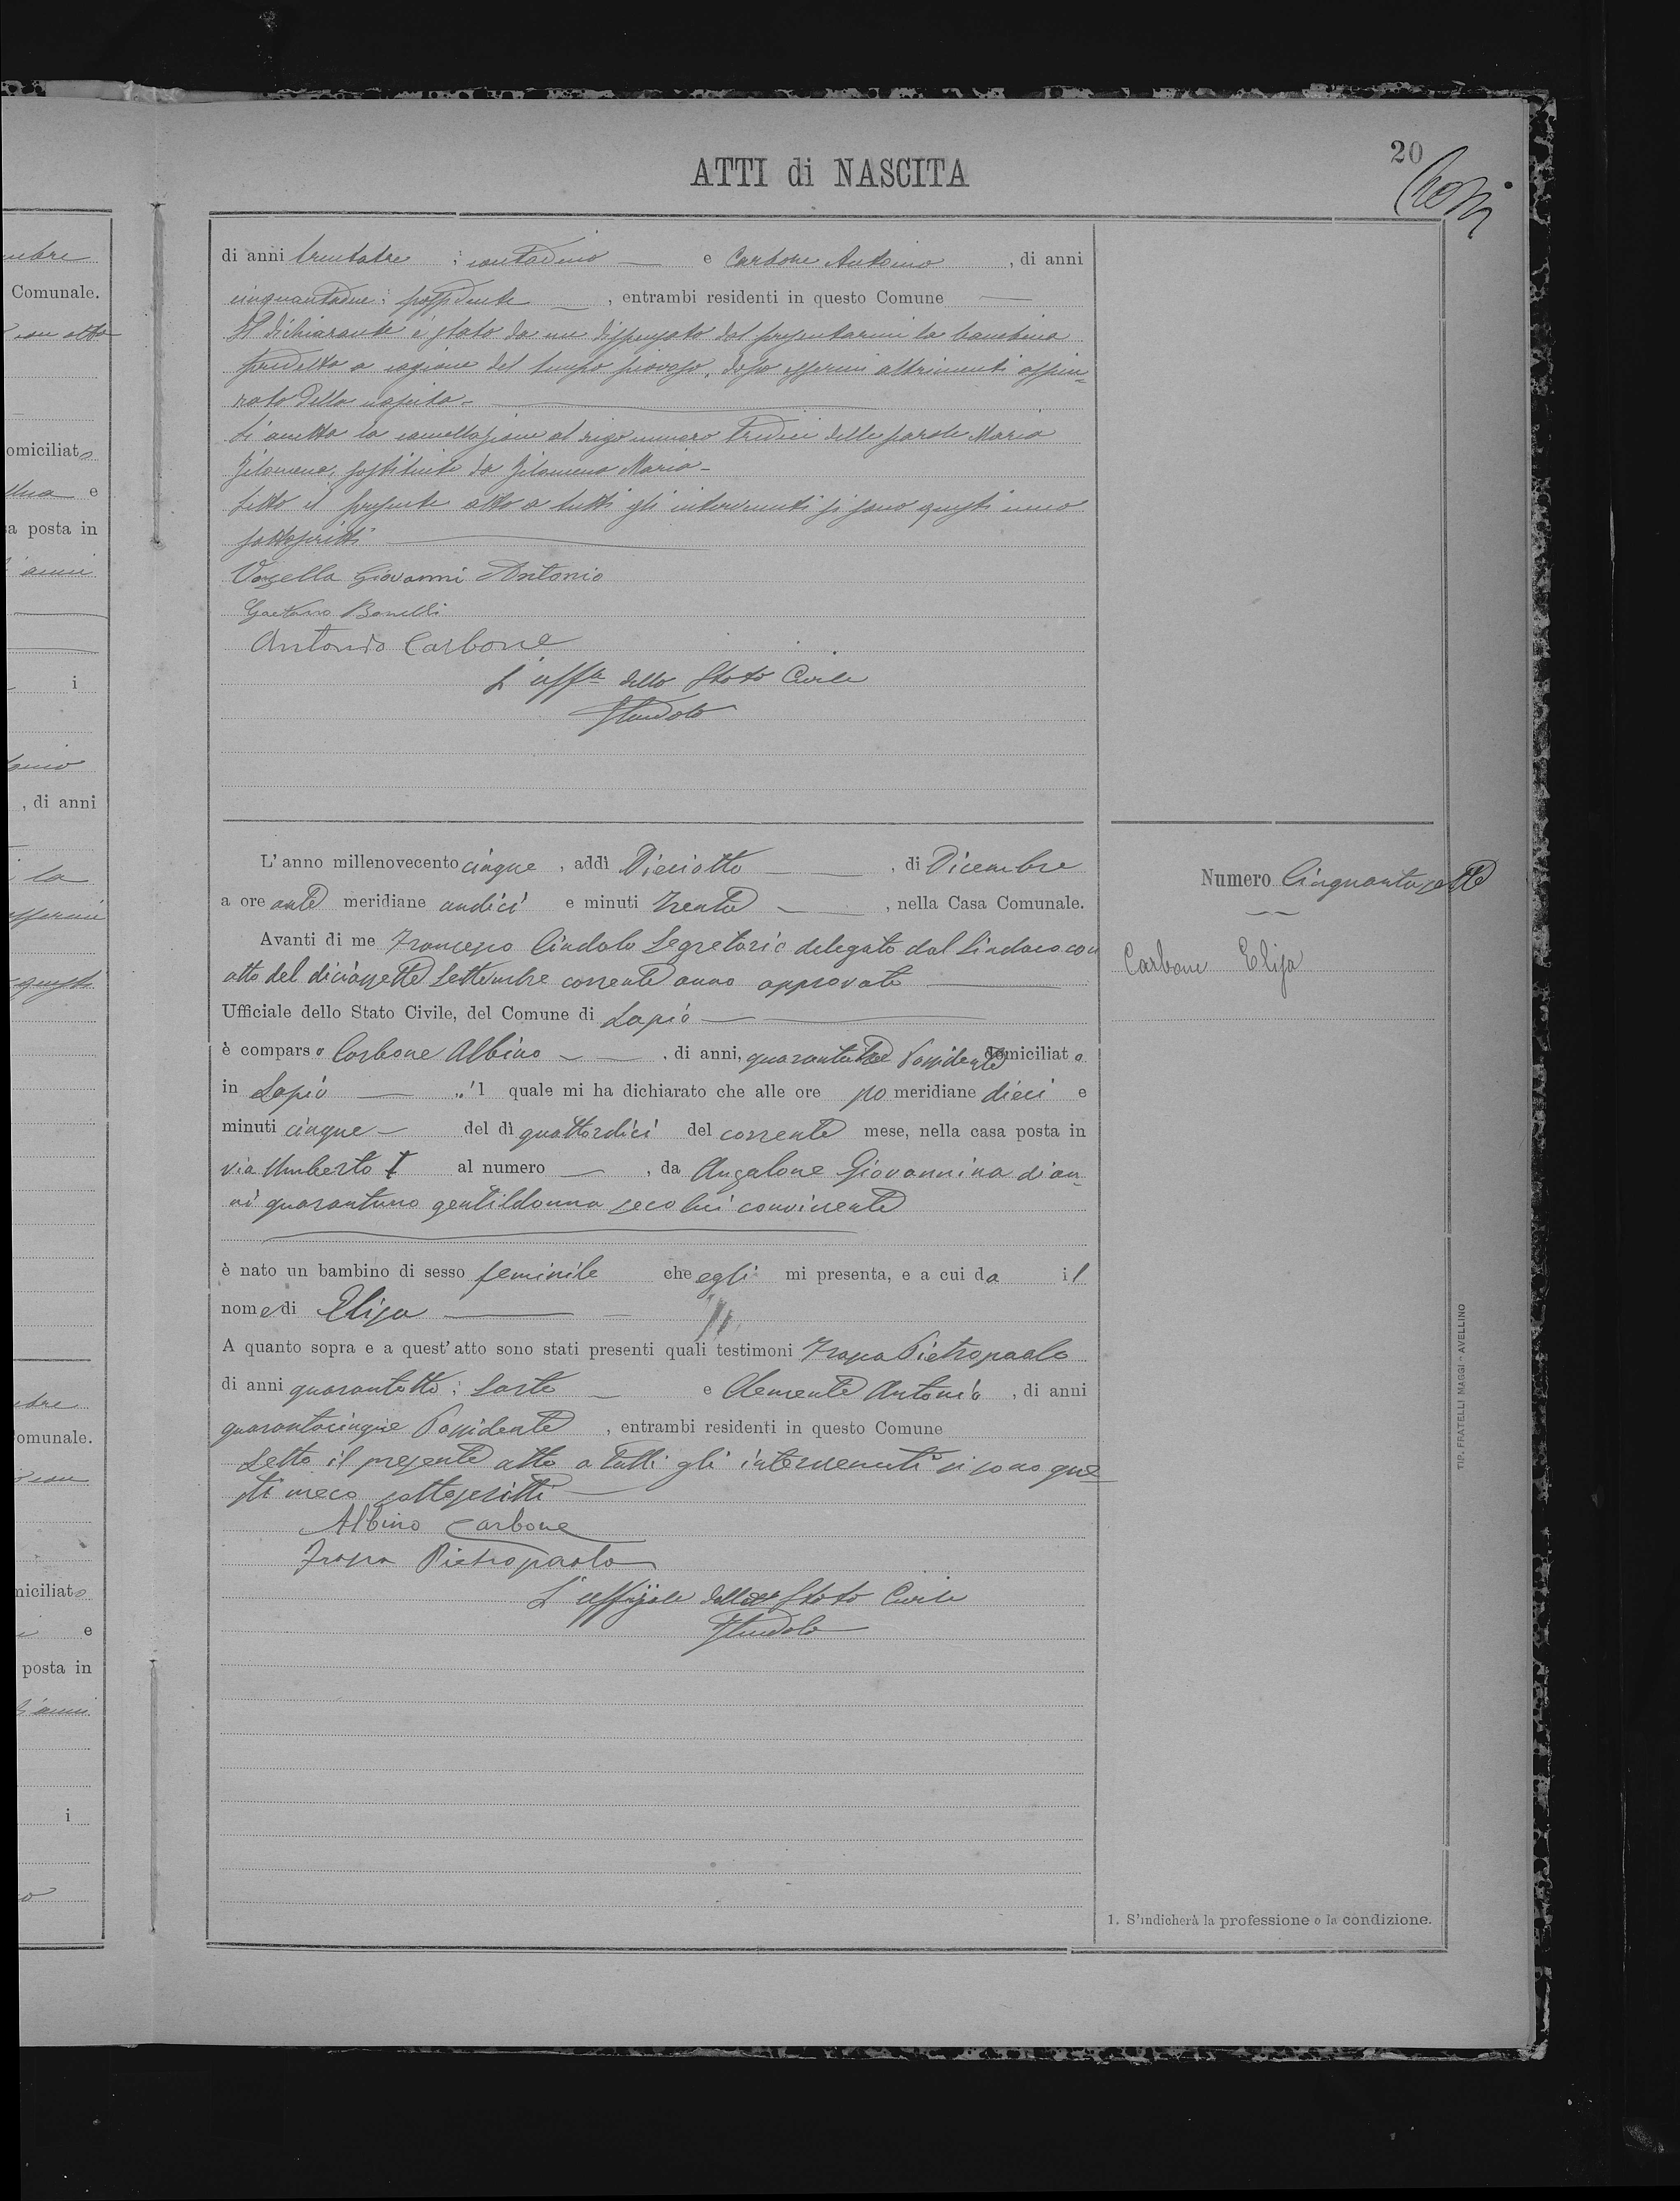 20
ATTI di NASCITA
mbre
Comunale.
omiciliato
e
a posta in
anni
i
, di anni
la
omunale.
niciliato
e
posta in
anni
i
di anni trentatre ; contadino — e Carbone Antonio , di anni
cinquantadue ; possidente — , entrambi residenti in questo Comune —
Il dichiarante è stato da me dispensato dal presentarmi la bambina
predetta a cagione del tempo piovoso, dopo essermi altrimenti assicu-
rato della nascita —
Si ammette la cancellazione al rigo numero tredici delle parole Maria
Filomena, sostituite da Filomena Maria —
Letto il presente atto a tutti gli intervenuti si sono questi meco
sottoscritti —
Vozella Giovanni Antonio
Gaetano Bonelli
Antonio Carbone
L'uffle dello Stato Civile
FCindolo
L'anno millenovecento cinque , addì Dieciotto — , di Dicembre
a ore ante meridiane undici e minuti trenta — , nella Casa Comunale.
Avanti di me Francesco Cindolo Segretario delegato dal Sindaco con
atto del diciassette Settembre corrente anno approvato —
Ufficiale dello Stato Civile, del Comune di Lapio —
è comparso Carbone Albino — , di anni, quarantatre Possidente domiciliato
in Lapio — , il quale mi ha dichiarato che alle ore po meridiane dieci e
minuti cinque — del dì quattordici del corrente mese, nella casa posta in
via Umberto I al numero — , da Anzalone Giovannina d'an-
ni quarantuno gentildonna seco lui convivente
è nato un bambino di sesso feminile che egli mi presenta, e a cui da il
nome di Elisa —
A quanto sopra e a quest'atto sono stati presenti quali testimoni Trapa Pietropaolo
di anni quarantotto ; Sarto — e Clemente Antonio , di anni
quarantacinque Possidente , entrambi residenti in questo Comune
Letto il presente atto a tutti gli intervenuti si sono que-
sti meco sottoscritti —
Albino Carbone
Trapa Pietropaolo
L'uffiziale dello Stato Civile
FCindolo
Numero Cinquantasette
Carbone Elisa
1. S'indicherà la professione o la condizione.
TIP. FRATELLI MAGGI - AVELLINO